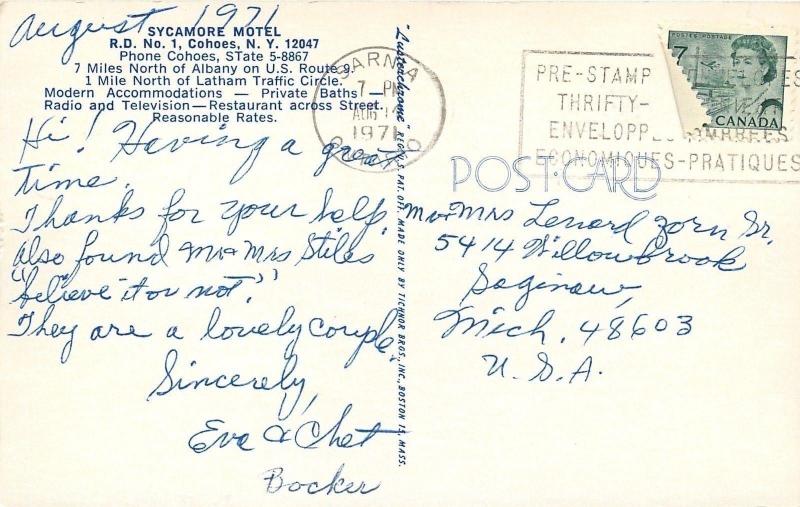 August 1971
SYCAMORE MOTEL
R.D. No. 1, Cohoes, N. Y. 12047
Phone Cohoes, STate 5-8867
7 Miles North of Albany on U.S. Route 9.
1 Mile North of Latham Traffic Circle.
Modern Accommodations — Private Baths —
Radio and Television — Restaurant across Street.
Reasonable Rates.
Hi! Having a great
time.
Thanks for your help.
Also found Mr & Mrs Stiles
"believe it or not."
They are a lovely couple.
Sincerely,
Eva & Chet
Bocker
"Lusterchrome" REG. U.S. PAT. OFF. MADE ONLY BY TICHNOR BROS., INC., BOSTON 15, MASS.
SARNIA
7 PM
AUG 14
1971
ONTARIO
PRE-STAMP
THRIFTY-
ENVELOPP
ECONOMIQUES-PRATIQUES
POSTES POSTAGE
7
CANADA
POST CARD
Mr + Mrs Lenard Zorn Sr.
5414 Willowbrook
Saginaw,
Mich. 48603
U.S.A.